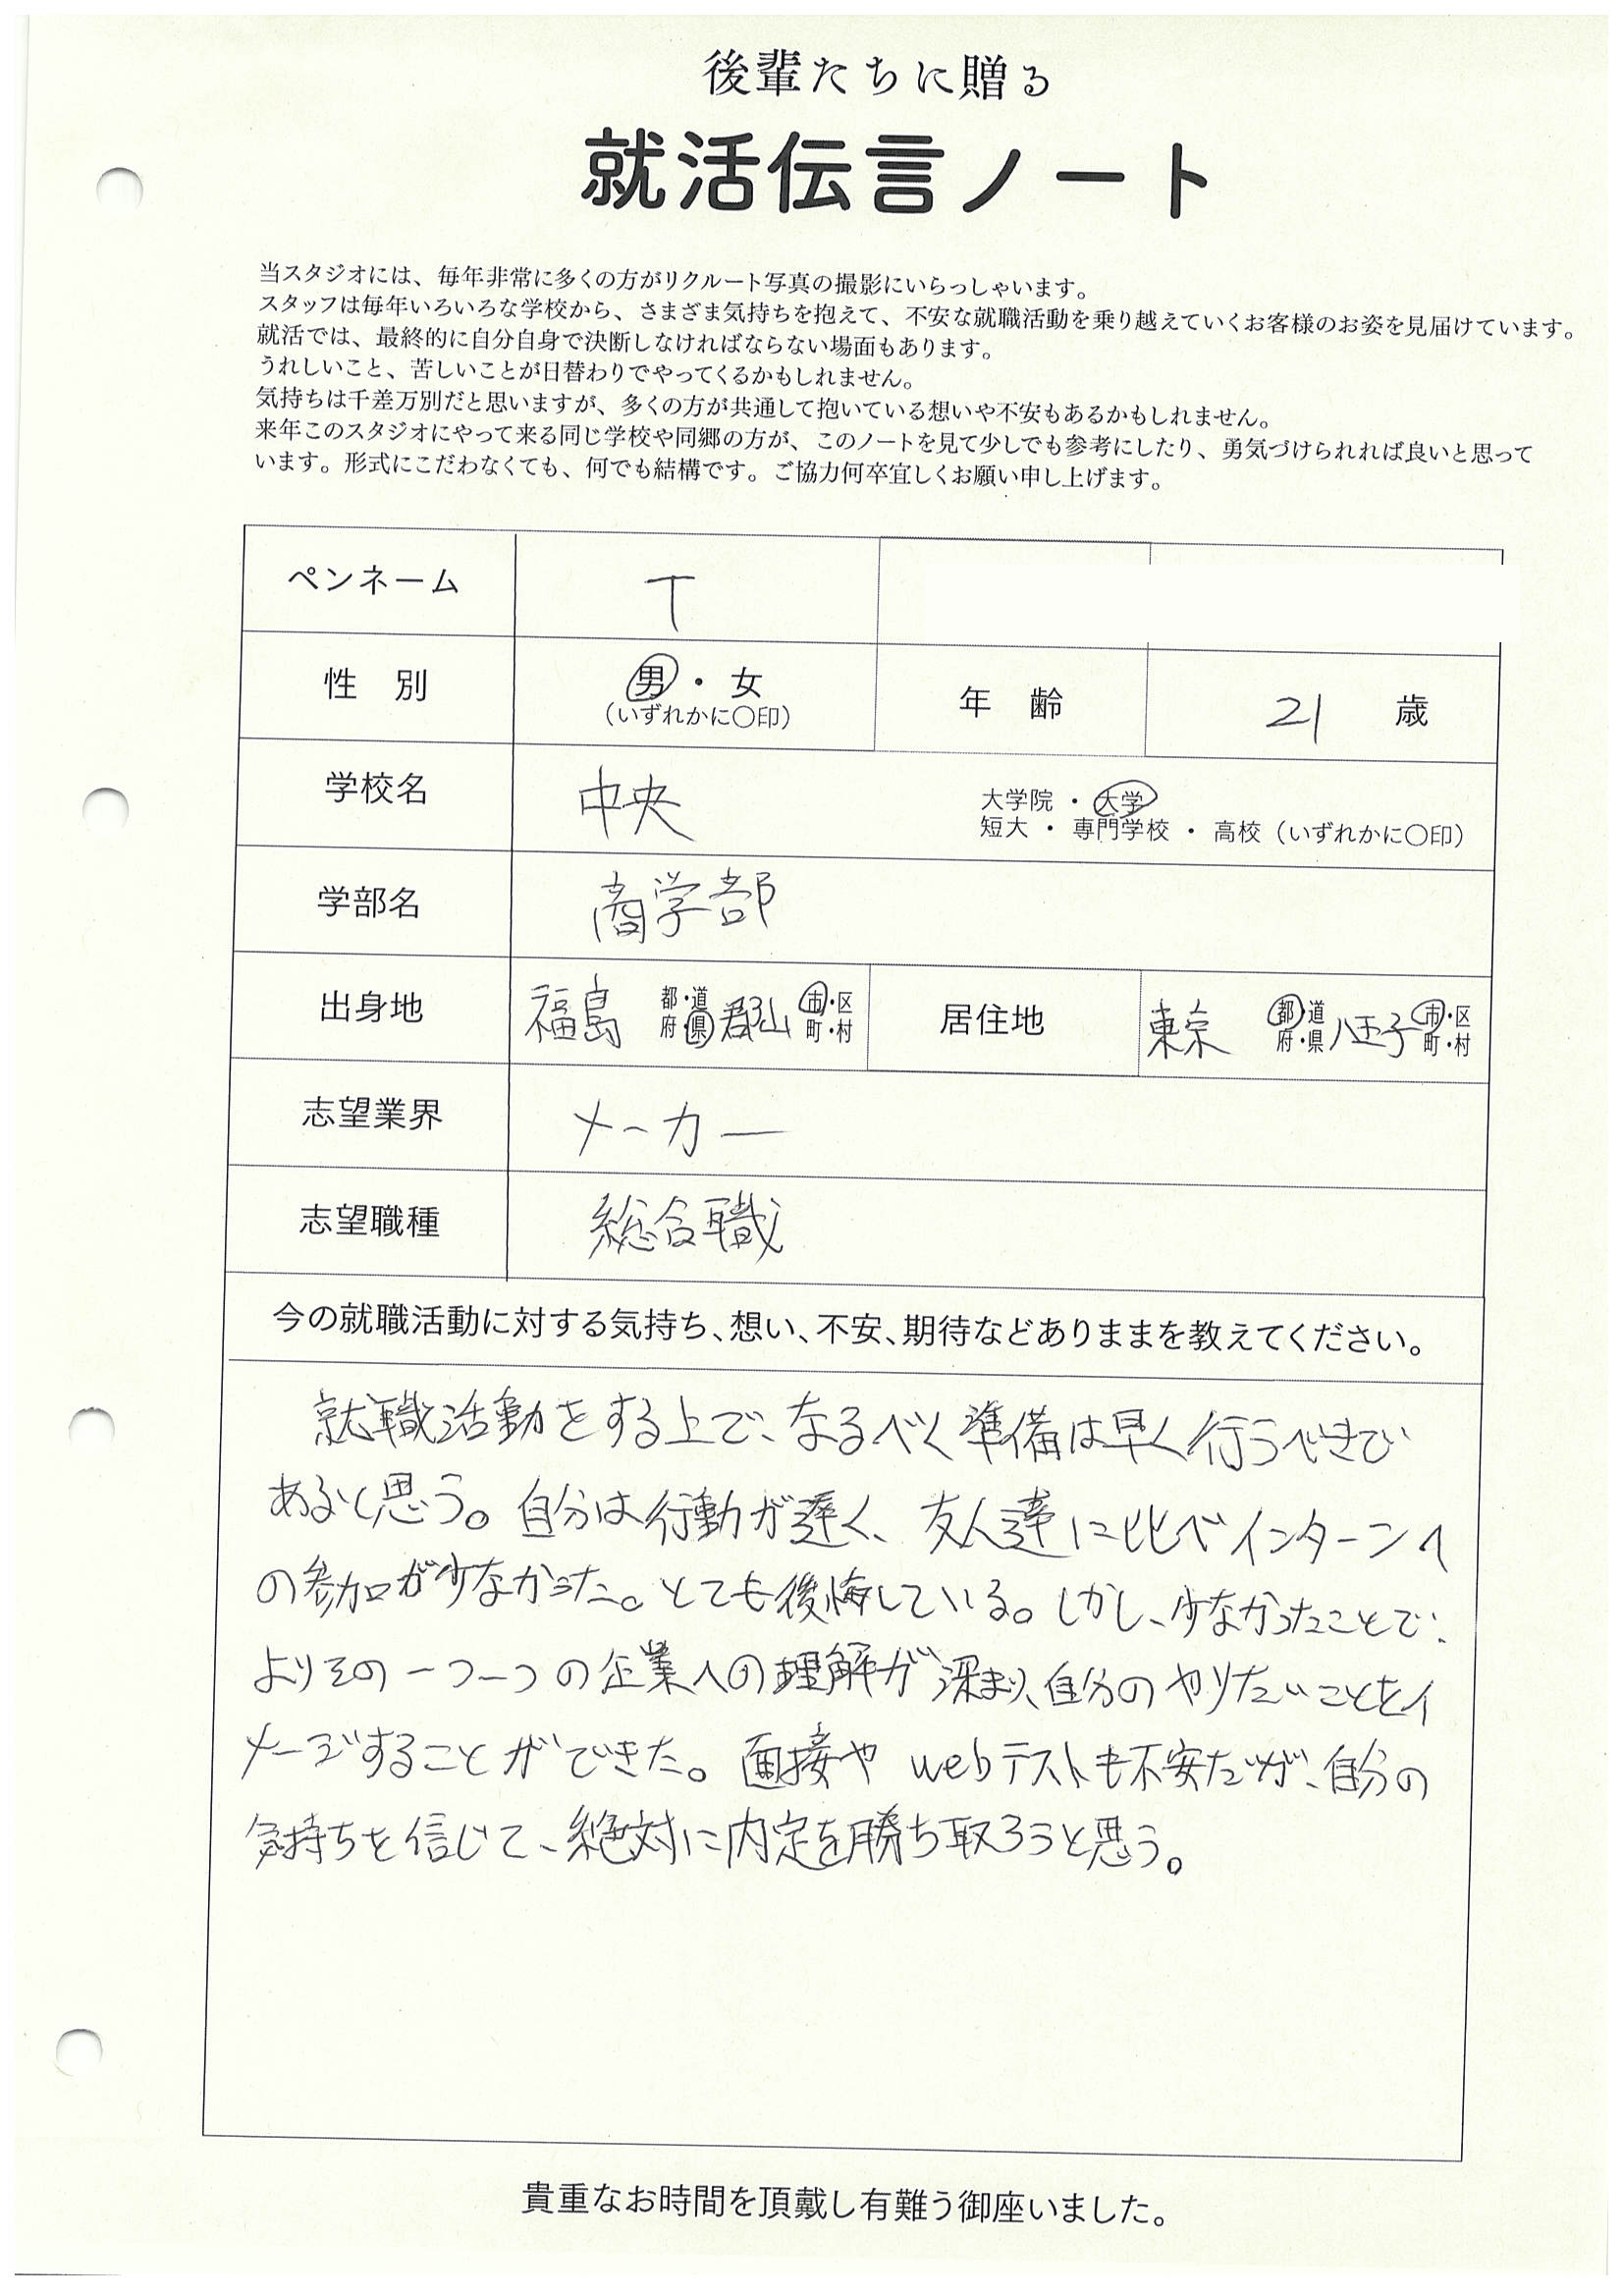 後輩たちに贈る
就活伝言ノート
当スタジオには、毎年非常に多くの方がリクルート写真の撮影にいらっしゃいます。
スタッフは毎年いろいろな学校から、さまざま気持ちを抱えて、不安な就職活動を乗り越えていくお客様のお姿を見届けています。
就活では、最終的に自分自身で決断しなければならない場面もあります。
うれしいこと、苦しいことが日替わりでやってくるかもしれません。
気持ちは千差万別だと思いますが、多くの方が共通して抱いている想いや不安もあるかもしれません。
来年このスタジオにやって来る同じ学校や同郷の方が、このノートを見て少しでも参考にしたり、勇気づけられれば良いと思って
います。形式にこだわなくても、何でも結構です。ご協力何卒宜しくお願い申し上げます。
ペンネーム T
性 別 男・女 年 齢 21 歳
(いずれかに〇印)
学校名 中央 大学院 ・ 大学
短大 ・ 専門学校 ・ 高校 (いずれかに〇印)
学部名 商学部
出身地 福島 都・道府・県 郡山 市・区町・村 居住地 東京 都・道府・県 八王子 市・区町・村
志望業界 メーカー
志望職種 総合職
今の就職活動に対する気持ち、想い、不安、期待などありままを教えてください。
就職活動をする上で、なるべく準備は早く行うべきで
あると思う。自分は行動が遅く、友人達に比べインターンへ
の参加が少なかった。とても後悔している。しかし、少なかったことで、
よりその一つ一つの企業への理解が深まり、自分のやりたいことをイ
メージすることができた。面接やwebテストも不安だが、自分の
気持ちを信じて、絶対に内定を勝ち取ろうと思う。
貴重なお時間を頂戴し有難う御座いました。